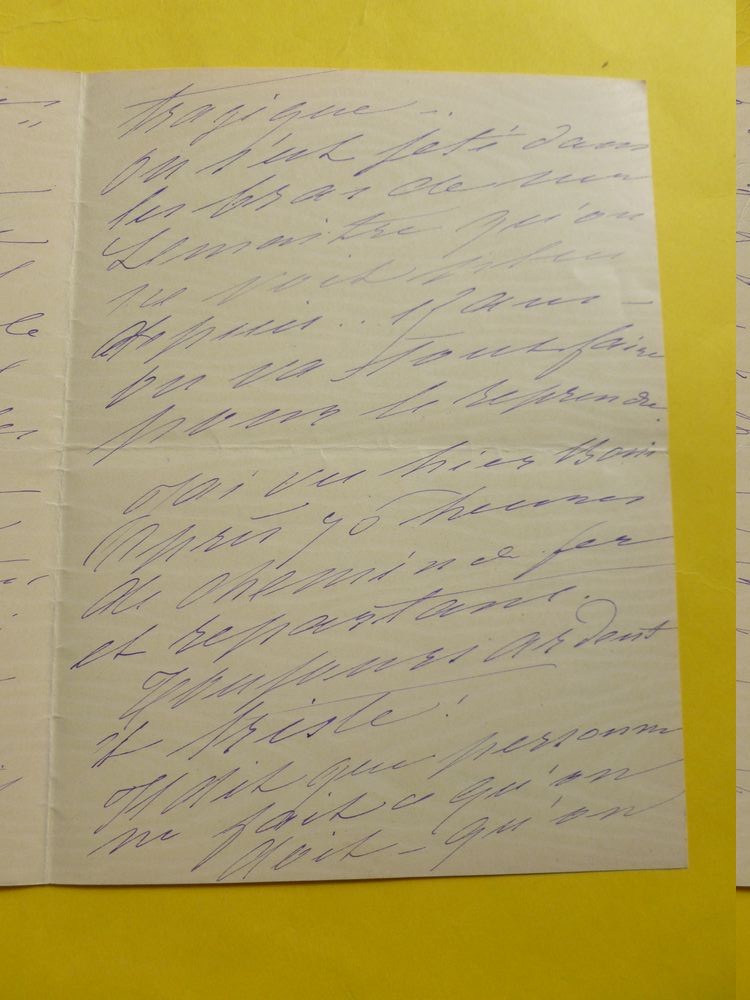 tragique..
on s'est jeté dans
les bras de
Lemaître qu'on
ne voit plus
depuis..
on va tout faire
pour le reprendre.
J'ai vu hier
après 70 heures
de chemin de fer
et repartant.
Toujours ardent
et triste!
Il dit que personne
ne fait ce qu'on
doit - qu'on